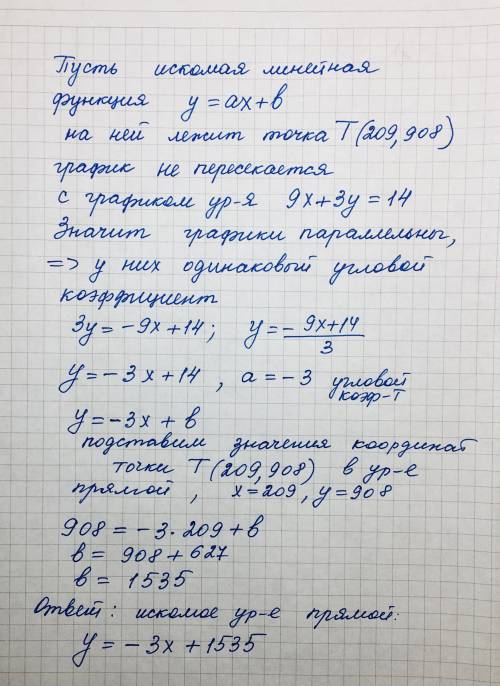 Пусть искомая линейная
функция y = ax + в
на ней лежит точка T(209,908)
график не пересекается
с графиком ур-я 9x+3y=14
Значит графики параллельны,
=> у них одинаковый угловой
коэффициент
3y = -9x+14; y = - 9x+14 / 3
y = -3x+14, a = -3 угловой
коэф-т
y = -3x + в
подставим значения координат
точки T(209,908) в ур-е
прямой, x=209, y=908
908 = -3·209+в
в = 908+627
в = 1535
Ответ: искомое ур-е прямой:
y = -3x+1535